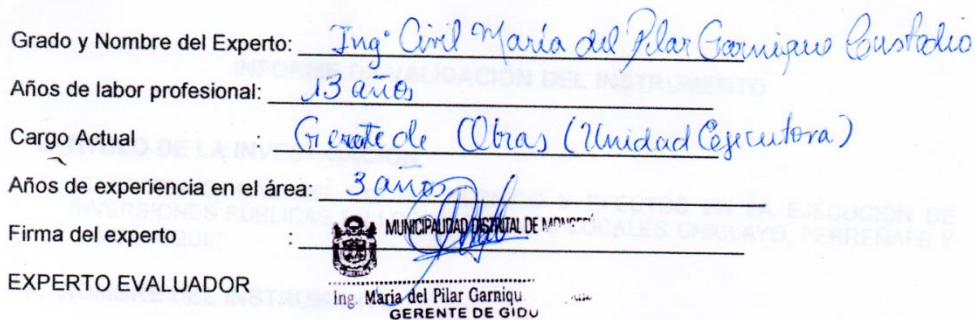 Grado y Nombre del Experto: Ing° Civil María del Pilar Garnique Custodio
Años de labor profesional: 13 años
Cargo Actual : Gerate de Obras (Unidad Ejecutora)
Años de experiencia en el área: 3 años
Firma del experto :
MUNICIPALIDAD DISTRITAL DE
EXPERTO EVALUADOR
Ing. María del Pilar Garniqu
GERENTE DE GIDU